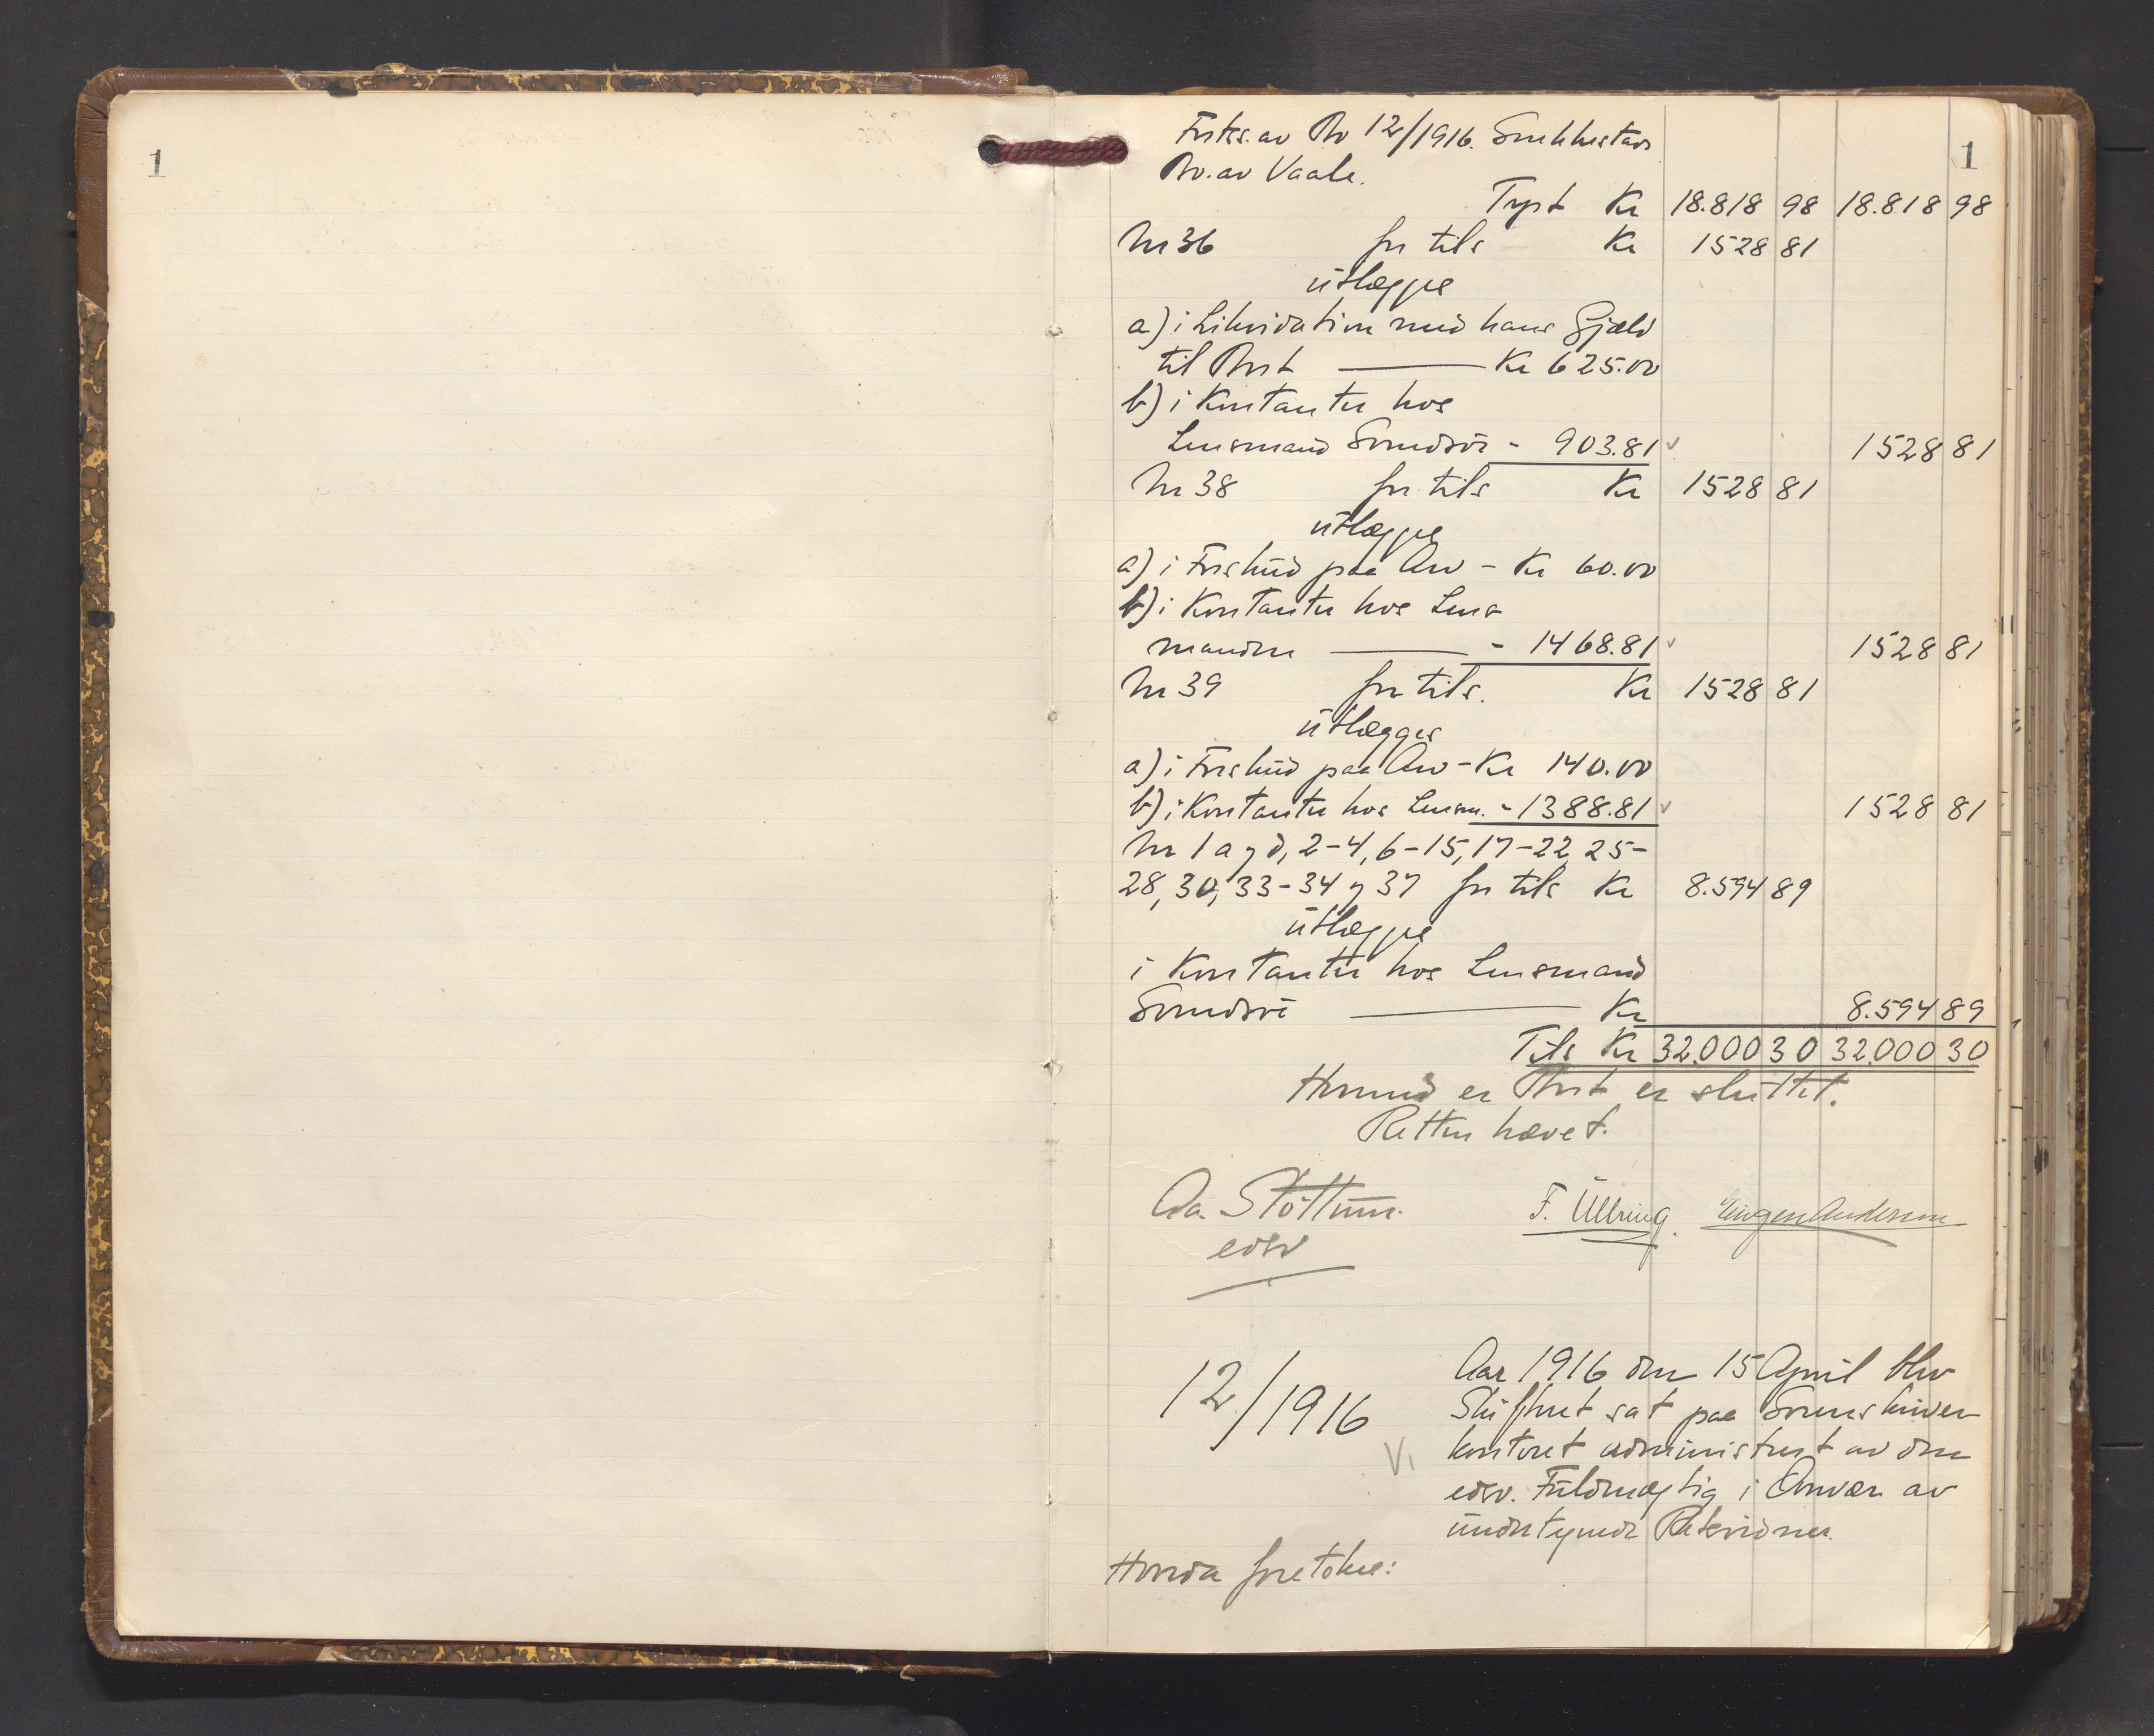 1
1
Forts. av No 12/1916.
Bo. av Vaale.
Trpst Kr 18.818 98 18.818 98
Nr 36 for tils Kr 1528 81
utlægges
a) i Likvidation med hans Gjæld
til Boet Kr 625.00
b) i Kontanter hos
Lensmand - 903.81 1528 81
Nr 38 for tils Kr 1528 81
utlægges
a) i Forskud paa Arv - Kr 60.00
b) i Kontanter hos Lens
manden - 1468.81 1528 81
Nr 39 for tils. Kr 1528 81
utlægges
a) i Forskud paa Arv - Kr 140.00
b) i Kontanter hos Lensm. - 1388.81 1528 81
Nr 1 a og d, 2-4, 6-15, 17-22, 25-
28, 30, 33-34 og 37 for tils Kr 8.594 89
utlægges
i Kontanter hos Lensmand
Kr 8.594 89
Tils Kr 32.000 30 32.000 30
Hermed er Boet er sluttet.
Retten hævet.
Aa. Støttum. F. Ullring. Eingen Andersen
edsv
12/1916
Aar 1916 den 15 April blev
Skifteret sat paa Sorenskriver
kontoret administrert av den
edsv. Fuldmægtig i Overvær av
undertegnede Retsvidner.
Hvorda foretokes: